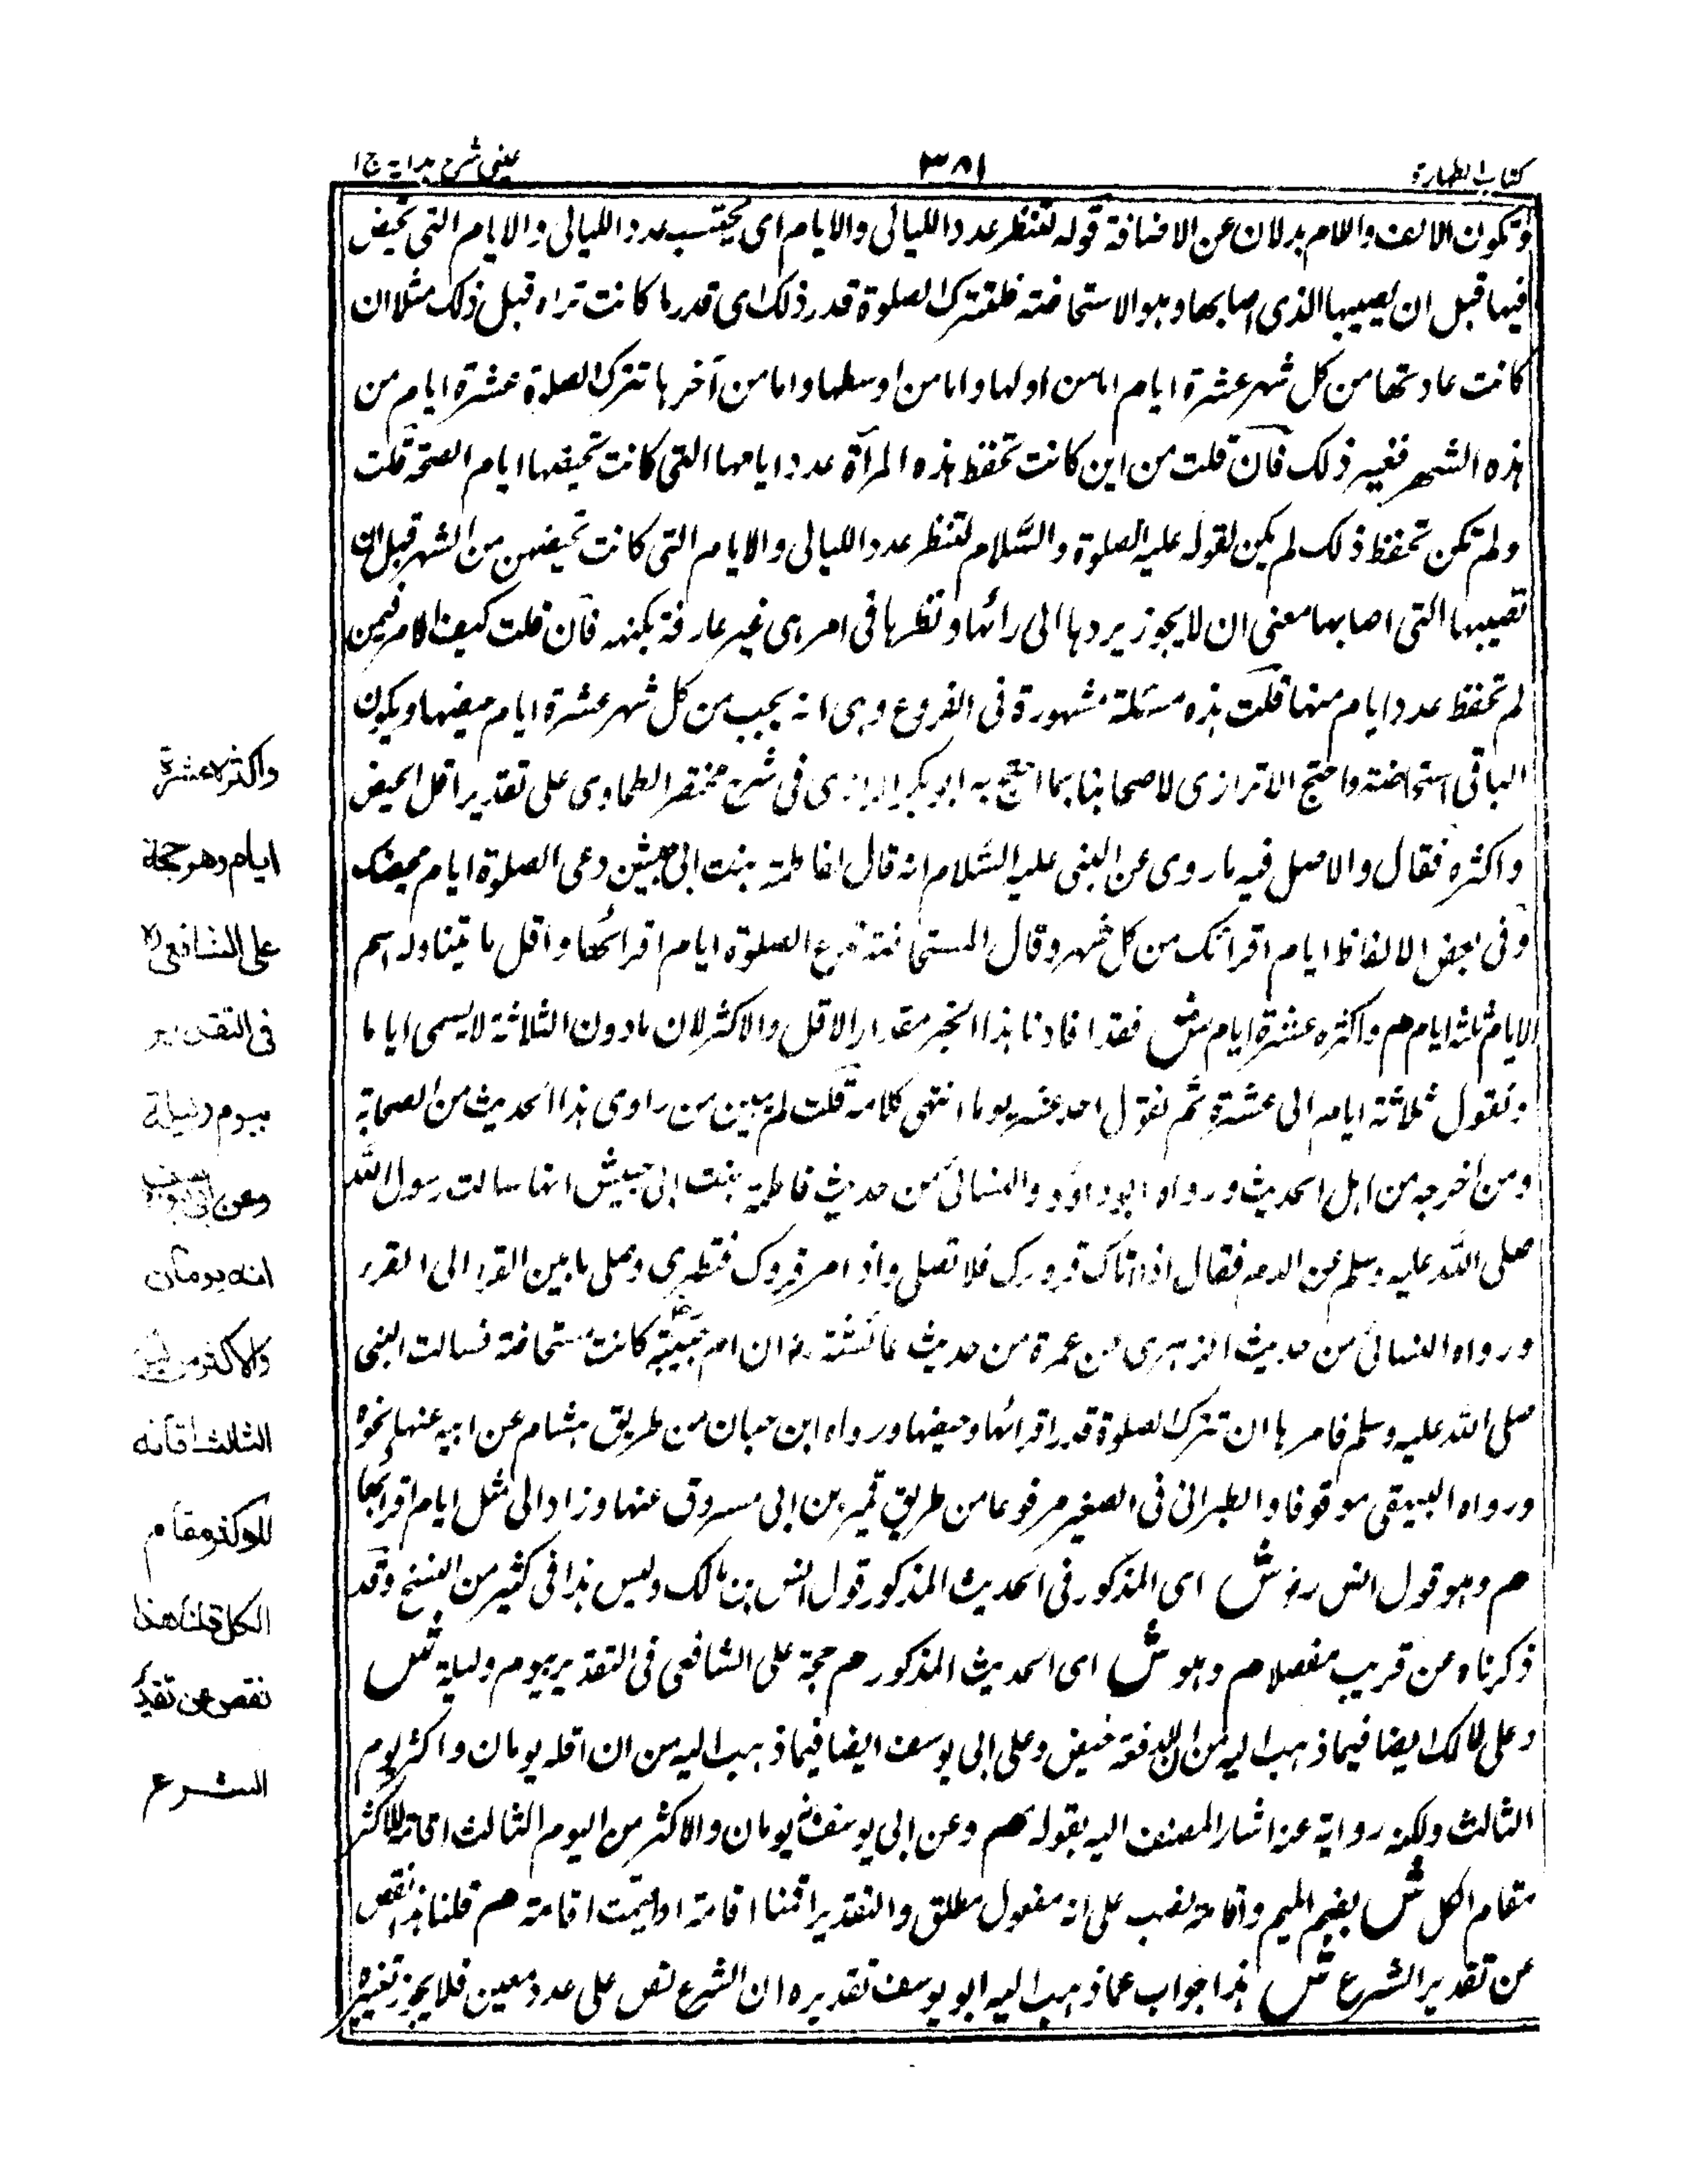 كتاب الطهارة
٣٨١
عينى شرح هداية ج١
وتكون الالف واللام بدلان عن الاضافة قوله لتنظر عدد الليالى والايام اى يحتسب عدد الليالى والايام التى تحيض
فيها قبل ان يصيبها الذى اصابها وهو الاستحاضة فلتترك الصلوة قدر ذلك اى قدر ما كانت تراه قبل ذلك مثلا ان
كانت عادتها من كل شهر عشرة ايام امامن اولها وامامن اوسطها وامامن آخرها تترك الصلوة عشرة ايام من
هذه الشهر فغير ذلك فان قلت من اين كانت تحفظ هذه المرأة عدد ايامها التى كانت تحيضها ايام الصحة قلت
ولم تكن تحفظ ذلك لم يكن لقوله عليه الصلوة والسلام لتنظر عدد الليالى والايام التى كانت تحيضهن من الشهر قبل ان
تصيبها التى اصابها معنى ان لا يجوز يردها الى رائها ونظرها فى امر هى غير عارفة بكنهه فان قلت كيف الامر فيمن
لم تحفظ عدد ايام منها قلت هذه مسئلة مشهورة فى الفروع وهى انه يجب من كل شهر عشرة ايام حيضها ويكون
الباقى استحاضة واحتج الاترازى لاصحابنا بما احتج به ابو بكر الرازى فى شرح مختصر الطحاوى على تقدير اقل الحيض
واكثره فقال والاصل فيه ما روى عن النبى عليه السلام انه قال لفاطمة بنت ابى حبيش دعى الصلوة ايام محيضك
وفى بعض الالفاظ ايام اقرائك من كل شهر وقال المستحاضة تدع الصلوة ايام اقرائها واقل ما يتناوله اسم
الايام ثلثة ايام هم واكثره عشرة ايام ش فقد افادنا هذا الخبر مقدار الاقل والاكثر لان مادون الثلاثة لايسمى اياما
ونقول ثلاثة ايام الى عشرة ثم نقول احد عشر يوما انتهى كلامه قلت لم يبين من راوى هذا الحديث من الصحابة
ومن اخرجه من اهل الحديث ورواه ابو داؤد والنسائى من حديث فاطمة بنت ابى حبيش انها سالت رسول الله
صلى الله عليه وسلم عن الدم فقال اذا اتاك قروك فلا تصلى واذا مر قروك فتطهرى وصلى ما بين القرء الى القرء
ورواه النسائى من حديث الزهرى عن عمرة من حديث عائشة رض ان ام حبيبة كانت مستحاضة فسالت النبى
صلى الله عليه وسلم فامرها ان تترك الصلوة قدر اقرائها وحيضها ورواه ابن حبان من طريق هشام عن ابيه عنها نحوه
ورواه البيهقى موقوفا والطبرانى فى الصغير مرفوعا من طريق قمير بن ابى مسروق عنها وزاد الى مثل ايام اقرائها
هم وهو قول انس رض ش اى المذكور فى الحديث المذكور قول انس بن مالك وليس هذا فى كثير من النسخ وقد
ذكرناه عن قريب مفصلا هم وهو ش اى الحديث المذكور هم حجة على الشافعى فى التقدير بيوم وليلة ش
وعلى مالك ايضا فيما ذهب اليه من ان الدفعة حيض وعلى ابى يوسف ايضا فيما ذهب اليه من ان اقله يومان واكثر يوم
الثالث ولكنه رواية عن اشار المصنف اليه بقوله هم وعن ابى يوسف انه يومان والاكثر من اليوم الثالث اقامة للاكثر
مقام الكل ش بضم الميم واقامة نصب على انه مفعول مطلق والتقدير اقمنا اقامة او اقيمت اقامة هم قلنا هذا نقص
عن تقدير الشرع ش هذا جواب عما ذهب اليه ابو يوسف تقديره ان الشرع نص على عدد معين فلا يجوز تغييره
واكثره عشرة
ايام وهو حجة
على الشافعى
فى التقدير
بيوم وليلة
وعن ابى يوسف
انه يومان
والاكثر من اليوم
الثالث اقامة
للاكثر مقام
الكل قلنا هذا
نقص عن تقدير
الشرع